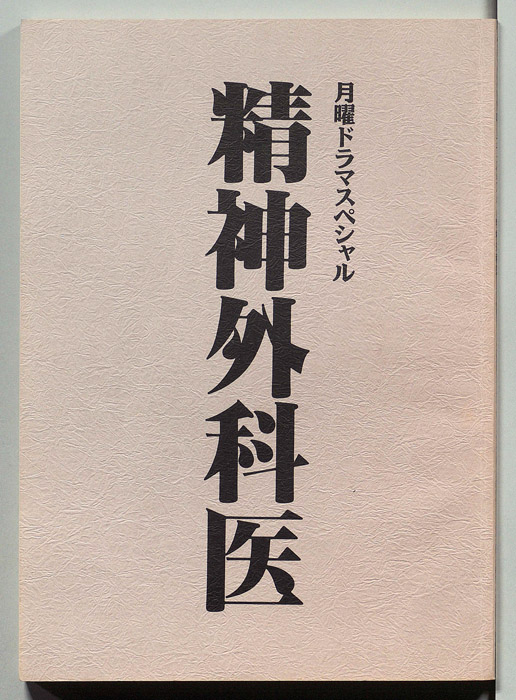 月曜ドラマスペシャル
精神外科医